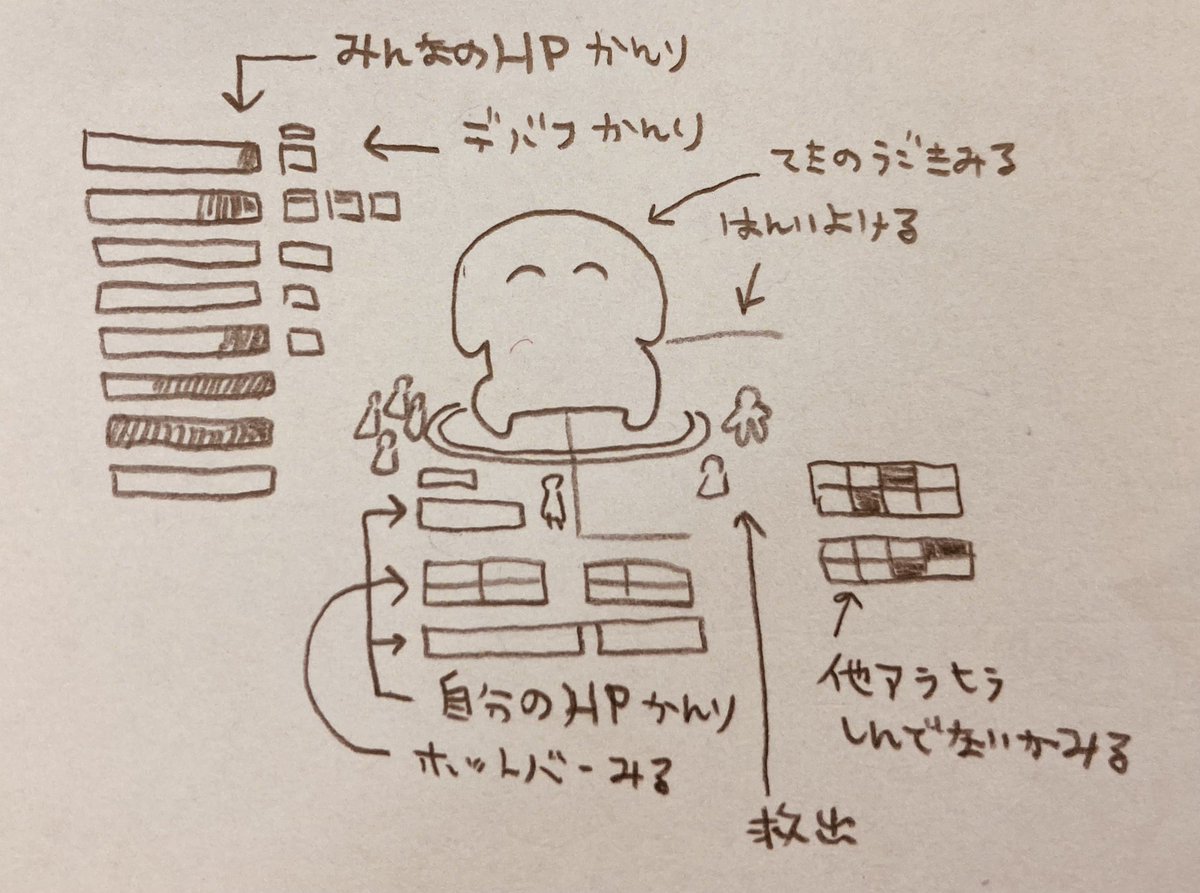 みんなのHPかんり
デバフかんり
てきのうごきみる
はんいよける
自分のHPかんり
ホットバーみる
救出
他アラヒラ
しんでないかみる